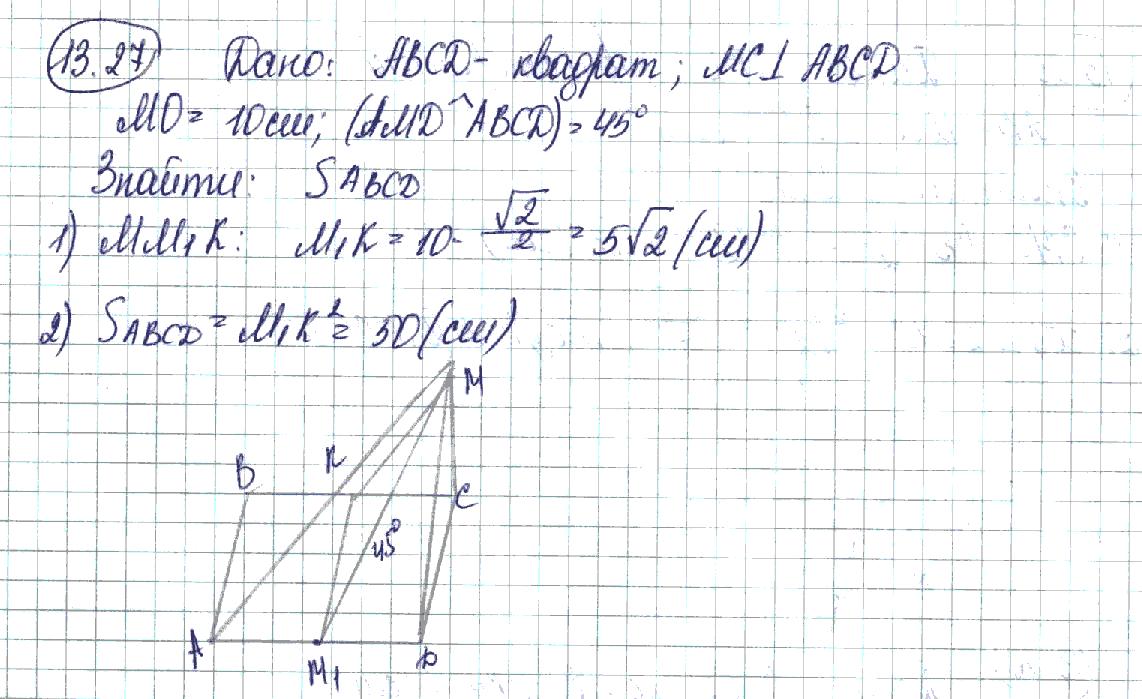 13.27 Дано: ABCD - квадрат; MC⊥ABCD
MD = 10см; (AMD^ABCD) = 45°
Знайти: SABCD
1) MM₁K: M₁K = 10 · √2/2 = 5√2 (см)
2) SABCD = M₁K² = 50 (см)
M
B K C
45°
A M₁ D